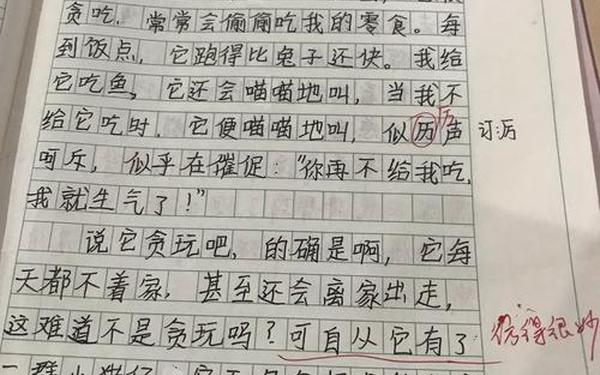 贪吃，常常会偷偷吃我的零食。每
到饭点，它跑得比兔子还快。我给
它吃鱼，它还会喵喵地叫，当我不
给它吃时，它便喵喵地叫，似厉声 订:厉
呵斥，似乎在催促：“你再不给我吃，
我就生气了！”
说它贪玩吧，的确是啊，它每
天都不着家，甚至还会离家出走，
这难道不是贪玩吗？可自从它有了 得很妙
一群小猫仔，它